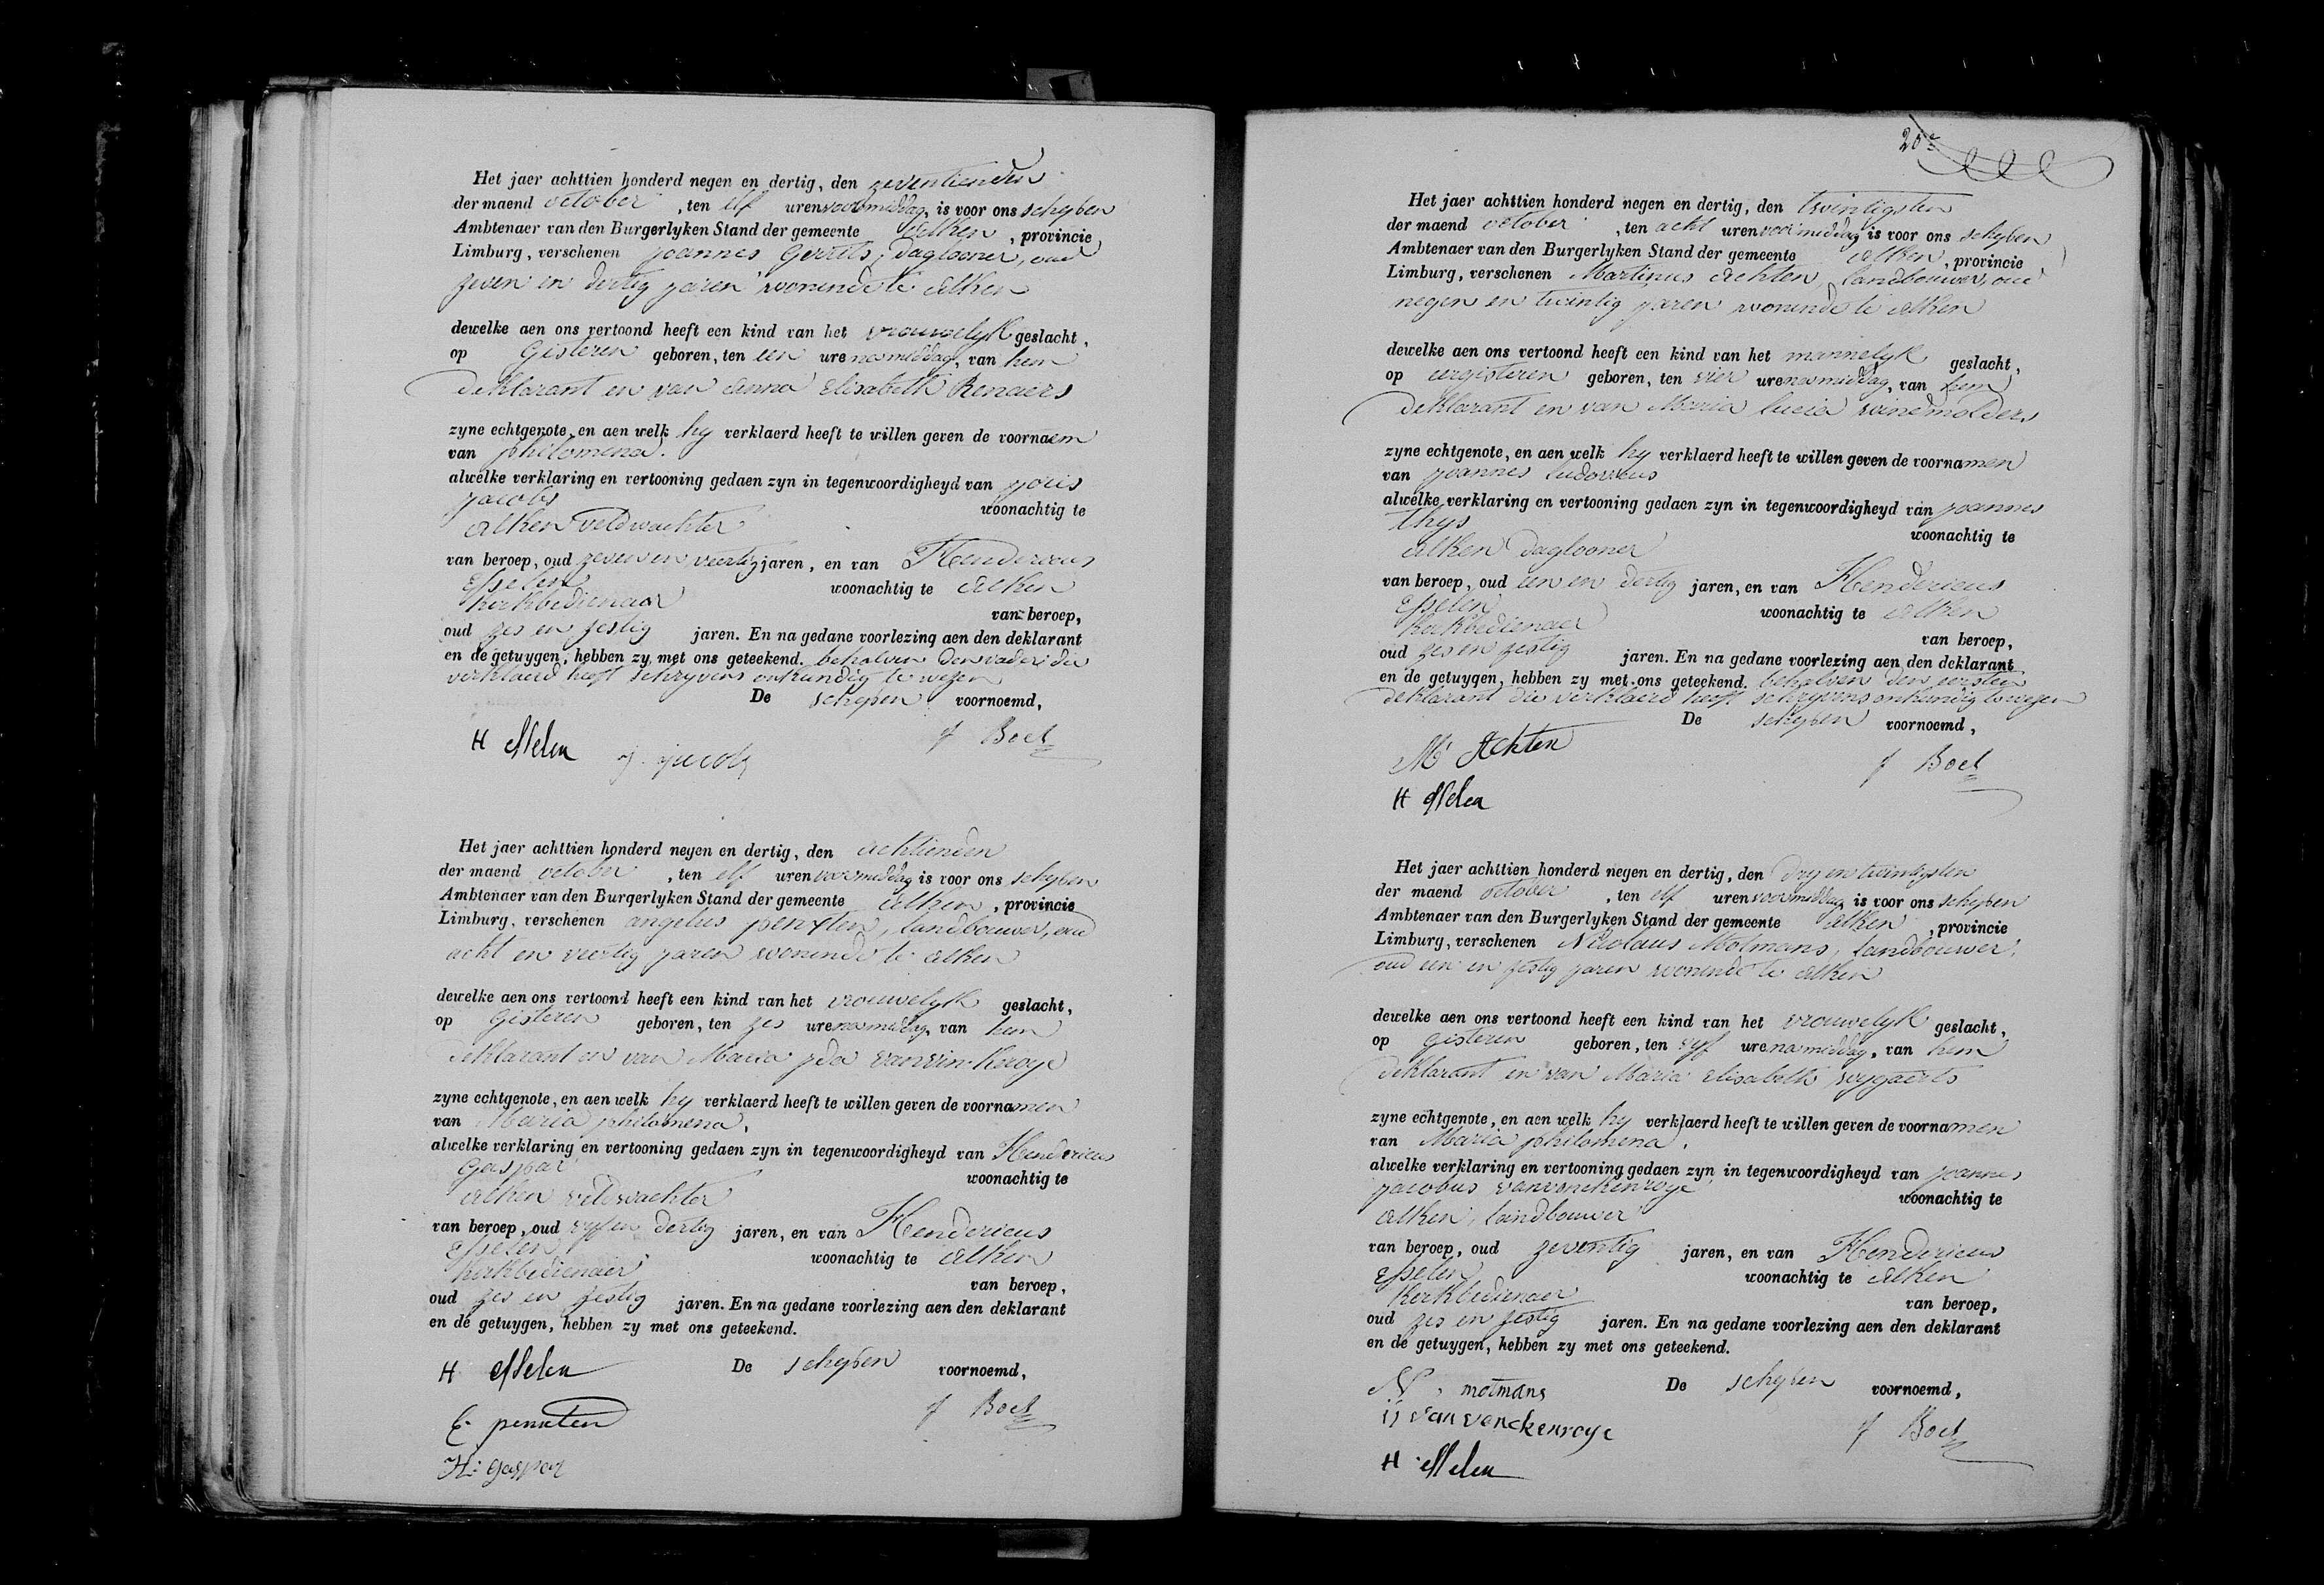 Het jaer achttien honderd negen en dertig, den zeventienden
der maend october , ten elf uren voormiddag, is voor ons schepen
Ambtenaer van den Burgerlyken Stand der gemeente Alken , provincie
Limburg, verschenen joannes Gerrits, daglooner, oud
zeven en dertig jaren woonende te alken
dewelke aen ons vertoond heeft een kind van het vrouwelyk geslacht,
op Gisteren geboren, ten een ure namiddag, van hem
deklarant en van Anna Elisabeth Renaers
zyne echtgenote, en aen welk hy verklaerd heeft te willen geven de voornaem
van philomena.
alwelke verklaring en vertooning gedaen zyn in tegenwoordigheyd van joris
jacobs woonachtig te
alken veldwachter
van beroep, oud zeven en veertig jaren, en van Hendericus
Esselen woonachtig te alken
kerkbedienaar van beroep,
oud zes en zestig jaren. En na gedane voorlezing aen den deklarant
en de getuygen, hebben zy met ons geteekend. behalven den vader die
verklaerd heeft schryvens onkundig te wezen
De schepen voornoemd,
H Esselen j. jacobs J Boel
Het jaer achttien honderd negen en dertig, den achtienden
der maend october , ten elf uren voormiddag is voor ons schepen
Ambtenaer van den Burgerlyken Stand der gemeente alken , provincie
Limburg, verschenen angelus penxten, landbouwer, oud
acht en veertig jaren woonende te alken
dewelke aen ons vertoond heeft een kind van het vrouwelyk geslacht,
op Gisteren geboren, ten zes ure namiddag, van hem
deklarant en van Maria jda vanvinkroye
zyne echtgenote, en aen welk hy verklaerd heeft te willen geven de voornamen
van Maria philomena.
alwelke verklaring en vertooning gedaen zyn in tegenwoordigheyd van Hendericus
Gaspar woonachtig te
alken veldwachter
van beroep, oud vyf en dertig jaren, en van Hendericus
Esselen woonachtig te alken
kerkbedienaer van beroep,
oud zes en zestig jaren. En na gedane voorlezing aen den deklarant
en de getuygen, hebben zy met ons geteekend.
H Esselen De schepen voornoemd,
E. penxten J Boel
H: gaspar
Het jaer achttien honderd negen en dertig, den twintigsten
der maend october , ten acht uren voormiddag is voor ons schepen
Ambtenaer van den Burgerlyken Stand der gemeente alken , provincie
Limburg, verschenen Martinus Achten, landbouwer, oud
negen en twintig jaren woonende te alken
dewelke aen ons vertoond heeft een kind van het mannelyk geslacht,
op eergisteren geboren, ten vier ure namiddag, van hem
deklarant en van Maria lucia windmolders
zyne echtgenote, en aen welk hy verklaerd heeft te willen geven de voornamen
van joannes ludovicus
alwelke verklaring en vertooning gedaen zyn in tegenwoordigheyd van joannes
thys woonachtig te
alken daglooner
van beroep, oud een en dertig jaren, en van Hendericus
Esselen woonachtig te alken
kerkbedienaer van beroep,
oud zes en zestig jaren. En na gedane voorlezing aen den deklarant
en de getuygen, hebben zy met ons geteekend. behalven den eersten
deklarant die verklaerd heeft schryvens onkundig te wezen
De schepen voornoemd,
M Achten J Boel
H Esselen
Het jaer achttien honderd negen en dertig, den dry en twintigsten
der maend october , ten elf uren voormiddag is voor ons schepen
Ambtenaer van den Burgerlyken Stand der gemeente alken , provincie
Limburg, verschenen Nicolaus Motmans, landbouwer,
oud een en zestig jaren woonende te alken
dewelke aen ons vertoond heeft een kind van het vrouwelyk geslacht,
op gisteren geboren, ten vyf ure namiddag, van hem
deklarant en van Maria Elisabeth wygaerts
zyne echtgenote, en aen welk hy verklaerd heeft te willen geven de voornamen
van Maria philomena.
alwelke verklaring en vertooning gedaen zyn in tegenwoordigheyd van joannes
jacobus vanvenckenroye woonachtig te
alken, landbouwer
van beroep, oud zeventig jaren, en van Hendericus
Esselen woonachtig te alken
kerkbedienaer van beroep,
oud zes en zestig jaren. En na gedane voorlezing aen den deklarant
en de getuygen, hebben zy met ons geteekend.
N. motmans De schepen voornoemd,
jj vanvenckenroye J Boel
H Esselen